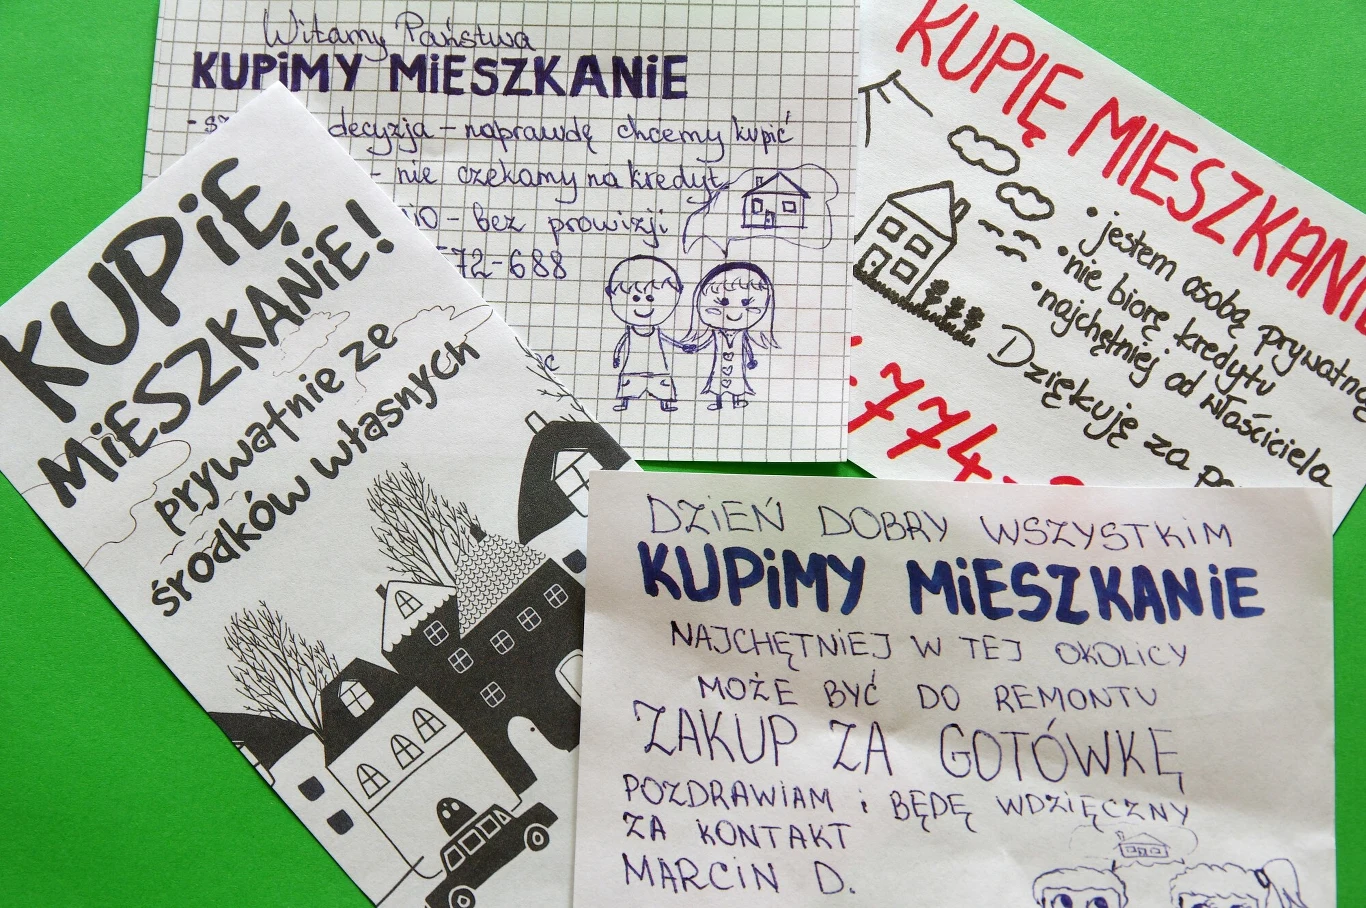 Witamy Państwa
KUPiMY MiESZKANiE
decyzja - naprawdę chcemy kupić
- nie czekamy na kredyt
- bez prowizji
72-688
KUPIĘ MIESZKANI
• jestem osobą prywatną
• nie biorę kredytu
• najchętniej od właściciela
Dziękuję za
774
KUPiĘ
MiESZKANiE!
prywatnie ze
środków własnych
DZiEŃ DOBRY WSZYSTKiM
KUPiMY MiESZKANiE
NAJCHĘTNiEJ W TEJ OKOLiCY
MOŻE BYĆ DO REMONTU
ZAKUP ZA GOTÓWKĘ
POZDRAWiAM i BĘDĘ WDZiĘCZNY
ZA KONTAKT
MARCiN D.